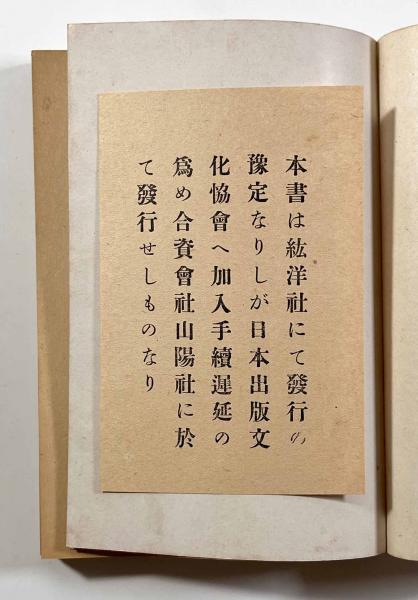 本書は紘洋社にて發行の
豫定なりしが日本出版文
化恊會へ加入手續遲延の
爲め合資會社山陽社に於
て發行せしものなり